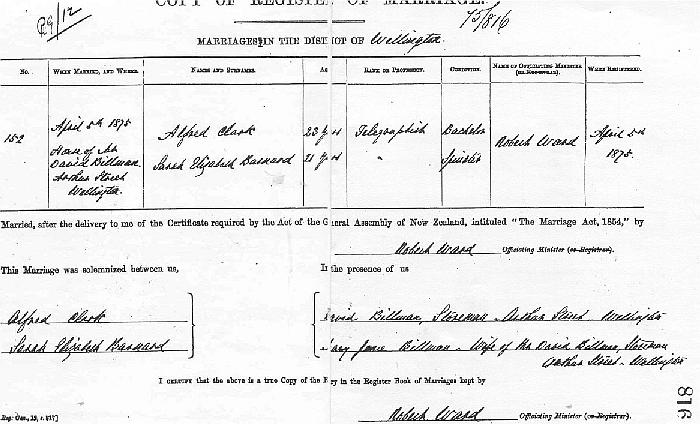 COPY OF REGISTER OF MARRIAGE.
R9/12
75/816
MARRIAGES IN THE DISTRICT OF Wellington.
No. WHEN MARRIED, AND WHERE. NAMES AND SURNAMES. RANK OR PROFESSION. CONDITION. NAME OF OFFICIATING MINISTER WHEN REGISTERED.
152
April 5th 1875
House of Mr
David Billman
Arthur Street
Wellington.
Alfred Clark
Sarah Elizabeth Barnard
23 years
21 years
Telegraphist
"
Bachelor
Spinster
Robert Ward
April 5th
1875.
Married, after the delivery to me of the Certificate required by the Act of the General Assembly of New Zealand, intituled "The Marriage Act, 1854," by
Robert Ward Officiating Minister (or Registrar).
This Marriage was solemnized between us, In the presence of us
Alfred Clark
Sarah Elizabeth Barnard
David Billman, Storeman Arthur Street Wellington
Mary Jane Billman - Wife of Mr David Billman, Storeman
Arthur Street - Wellington
I CERTIFY that the above is a true Copy of the Entry in the Register Book of Marriages kept by
Robert Ward Officiating Minister (or Registrar).
816